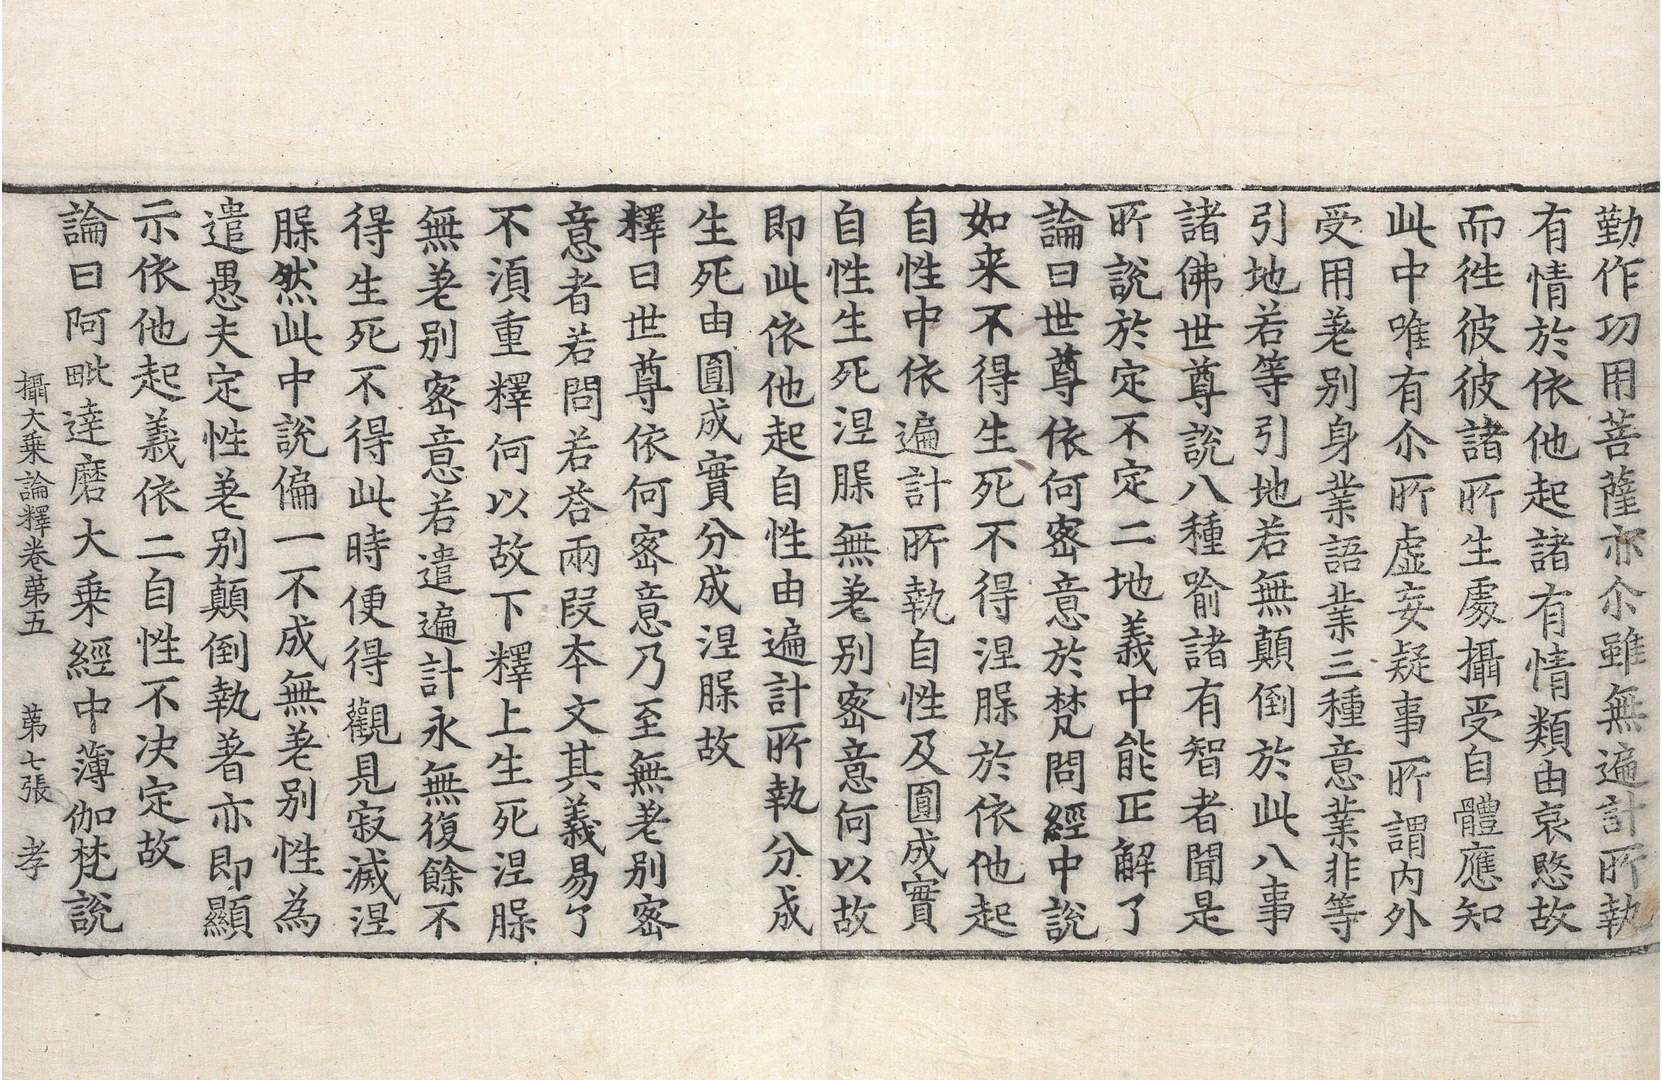 勤作功用菩薩亦尒雖無遍計所執
有情於依他起諸有情類由哀愍故
而徃彼彼諸所生處攝受自體應知
此中唯有尒所虛妄疑事所謂内外
受用差别身業語業三種意業非等
引地若等引地若無顛倒於此八事
諸佛世尊說八種喻諸有智者聞是
所說於定不定二地義中能正解了
論曰世尊依何密意於梵問經中說
如来不得生死不得涅槃於依他起
自性中依遍計所執自性及圓成實
自性生死涅槃無差别密意何以故
即此依他起自性由遍計所執分成
生死由圓成實分成涅槃故
釋曰世尊依何密意乃至無差别密
意者若問若荅兩叚本文其義易了
不湏重釋何以故下釋上生死涅槃
無差别密意若遣遍計永無復餘不
得生死不得此時便得觀見寂滅涅
槃然此中說偏一不成無差别性為
遣愚夫定性差别顛倒執著亦即顯
示依他起義依二自性不决定故
論曰阿毗達磨大乘經中薄伽梵說
攝大乘論釋卷苐五 苐七張 孝